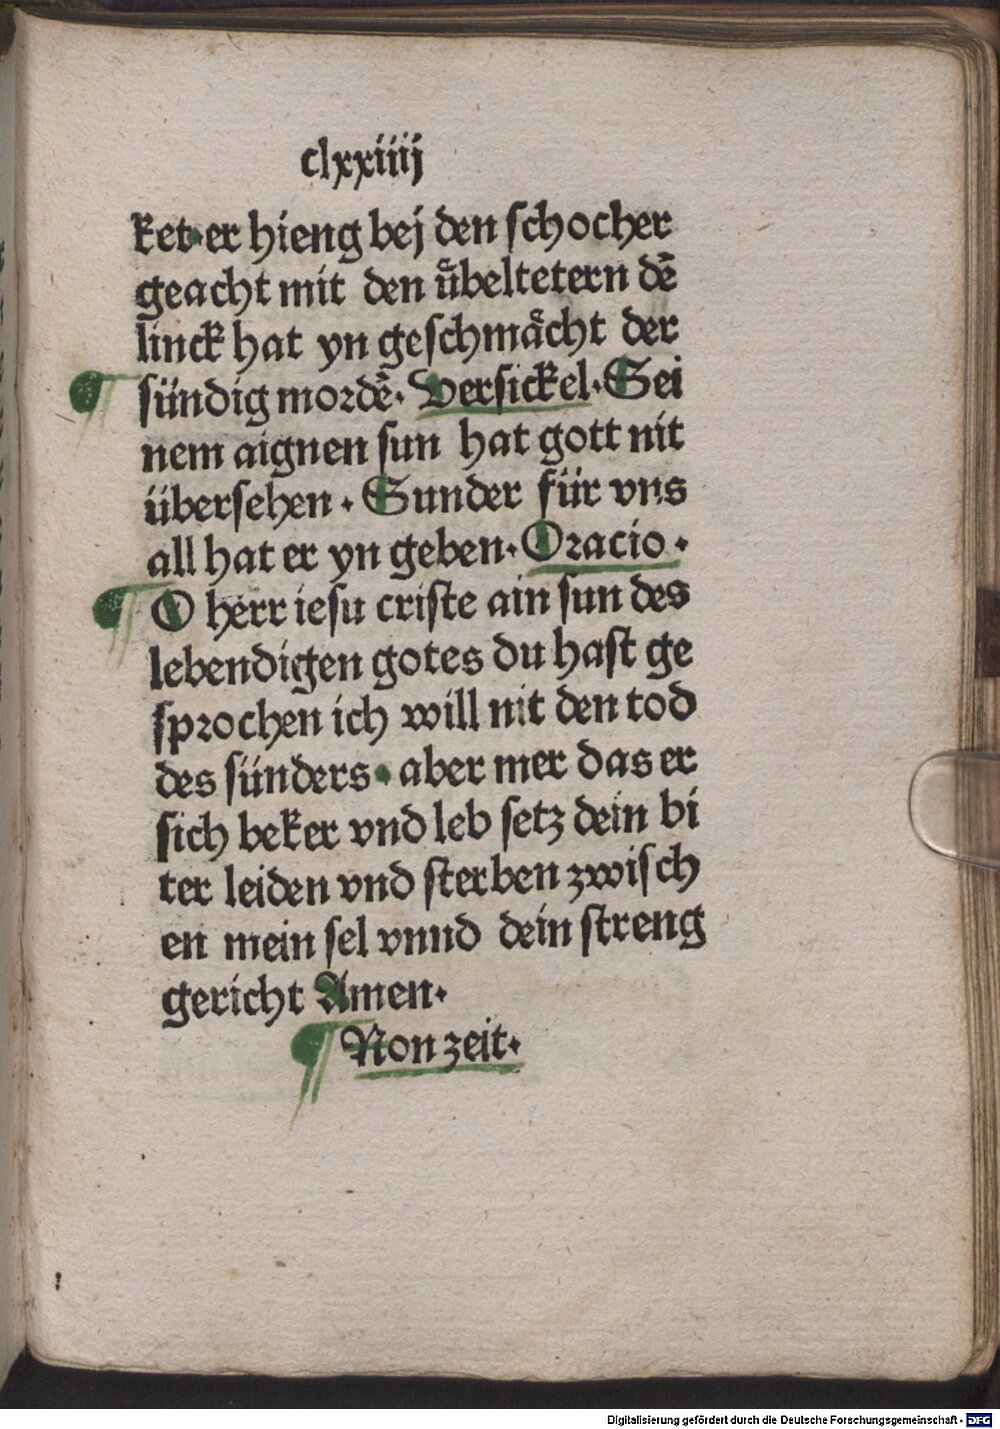 clxxiiij
ket·er hieng bej den schocher
geacht mit den v̈beltetern dē
linck hat yn geschmächt der
sündig mordē· Versickel·Sei
nem aignen sun hat gott nit
übersehen · Sunder für vns
all hat er yn geben·Oracio·
O herr iesu criste ain sun des
lebendigen gotes du hast ge
sprochen ich will nit den tod
des sünders· aber mer das er
sich beker vnd leb setz dein bi
ter leiden vnd sterben zwisch
en mein sel vnnd dein streng
gericht Amen·
Non zeit·
Digitalisierung gefördert durch die Deutsche Forschungsgemeinschaft - DFG